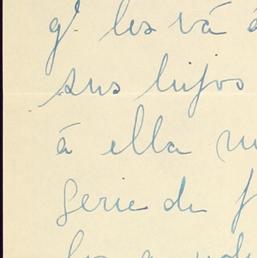 qe. les vá á
sus hijos
á ella
serie de f